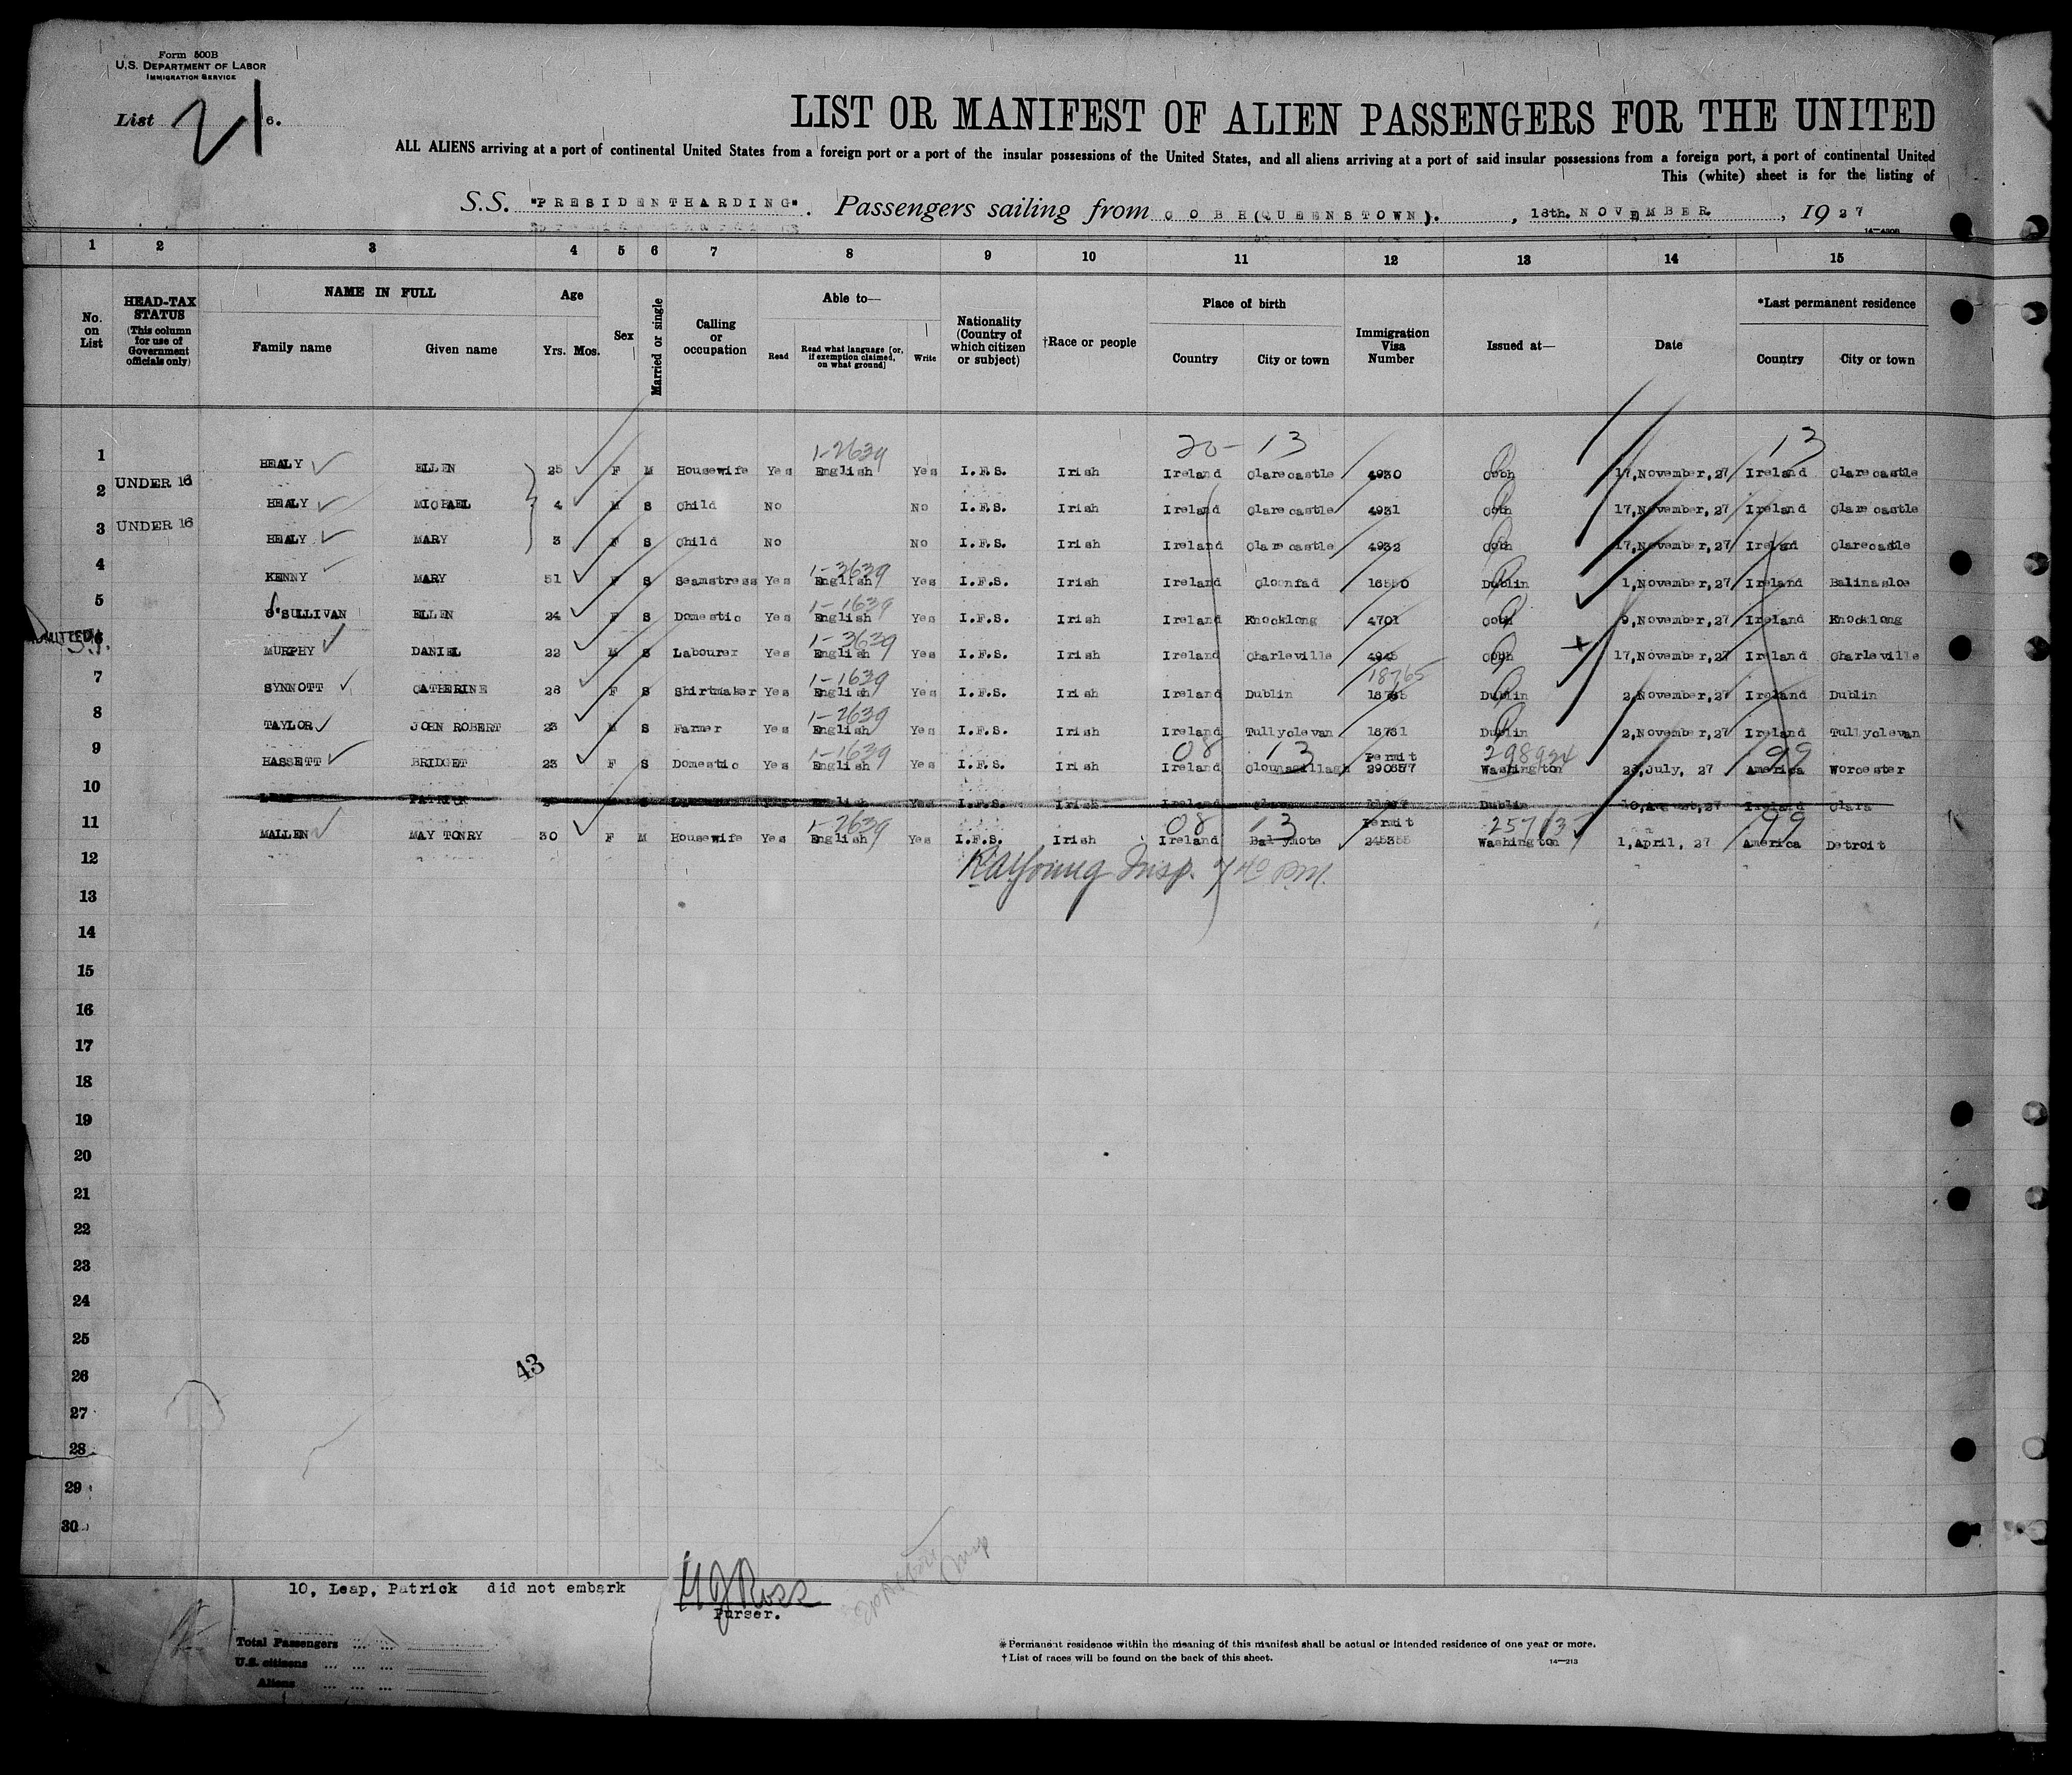 Form 500B
U.S. DEPARTMENT OF LABOR
IMMIGRATION SERVICE
List 21 6.
LIST OR MANIFEST OF ALIEN PASSENGERS FOR THE UNITED
ALL ALIENS arriving at a port of continental United States from a foreign port or a port of the insular possessions of the United States, and all aliens arriving at a port of said insular possessions from a foreign port, a port of continental United
This (white) sheet is for the listing of
S.S. "PRESIDENT HARDING". Passengers sailing from COBH (QUEENSTOWN)., 18th. NOVEMBER, 1927
14—4208
1 2 3 4 5 6 7 8 9 10 11 12 13 14 15
No. on List
HEAD-TAX STATUS (This column for use of Government officials only)
NAME IN FULL Family name Given name
Age Yrs. Mos.
Sex
Married or single
Calling or occupation
Able to— Read Read what language [or, if exemption claimed, on what ground] Write
Nationality (Country of which citizen or subject)
†Race or people
Place of birth Country City or town
Immigration Visa Number
Issued at—
Date
*Last permanent residence Country City or town
1-2639 20- 13 13
1 HEALY ELLEN 25 F M Housewife Yes English Yes I.F.S. Irish Ireland Clarecastle 4930 Cobh 17,November,27 Ireland Clarecastle
2 UNDER 16 HEALY MICHAEL 4 M S Child No No I.F.S. Irish Ireland Clarecastle 4931 Cobh 17,November,27 Ireland Clarecastle
3 UNDER 16 HEALY MARY 3 F S Child No No I.F.S. Irish Ireland Clarecastle 4932 Cobh 17,November,27 Ireland Clarecastle
1-3639
4 KENNY MARY 51 F S Seamstress Yes English Yes I.F.S. Irish Ireland Cloonfad 16550 Dublin 1,November,27 Ireland Balinasloe
1-1639
5 O'SULLIVAN ELLEN 24 F S Domestic Yes English Yes I.F.S. Irish Ireland Knocklong 4701 Cobh 9,November,27 Ireland Knocklong
ADMITTED S.I. 1-3639
6 MURPHY DANIEL 22 M S Labourer Yes English Yes I.F.S. Irish Ireland Charleville 4945 Cobh 17,November,27 Ireland Charleville
1-1639 18765
7 SYNNOTT CATHERINE 28 F S Shirtmaker Yes English Yes I.F.S. Irish Ireland Dublin 18765 Dublin 2,November,27 Ireland Dublin
1-2639
8 TAYLOR JOHN ROBERT 23 M S Farmer Yes English Yes I.F.S. Irish Ireland Tullyclevan 18731 Dublin 2,November,27 Ireland Tullyclevan
1-1639 08 13 Permit 298924 99
9 HASSETT BRIDGET 23 F S Domestic Yes English Yes I.F.S. Irish Ireland 290657 Washington July, 27 America Worcester
10 LEAP PATRICK English Yes I.F.S. Irish Ireland Clara Dublin 10,August,27 Ireland Clara
1-2639 08 13 Permit 99
11 MALLEN MAY TONRY 30 F M Housewife Yes English Yes I.F.S. Irish Ireland Balymote 245355 Washington 1,April, 27 America Detroit
12
Insp. 7 40 P.M.
13
14
15
16
17
18
19
20
21
22
23
24
25
43
26
27
28
29
30
10, Leap, Patrick did not embark
H J Ross
Purser.
Total Passengers ... ...
U.S. citizens ... ... ...
Aliens ... ... ...
* Permanent residence within the meaning of this manifest shall be actual or intended residence of one year or more.
† List of races will be found on the back of this sheet.
14—213